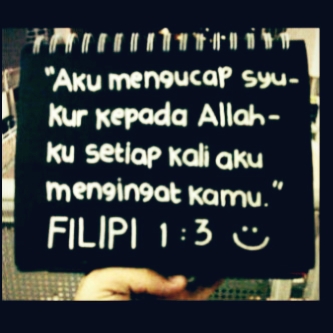 "Aku mengucap syu-
kur kepada Allah-
ku setiap kali aku
mengingat kamu."
FILIPI 1 : 3